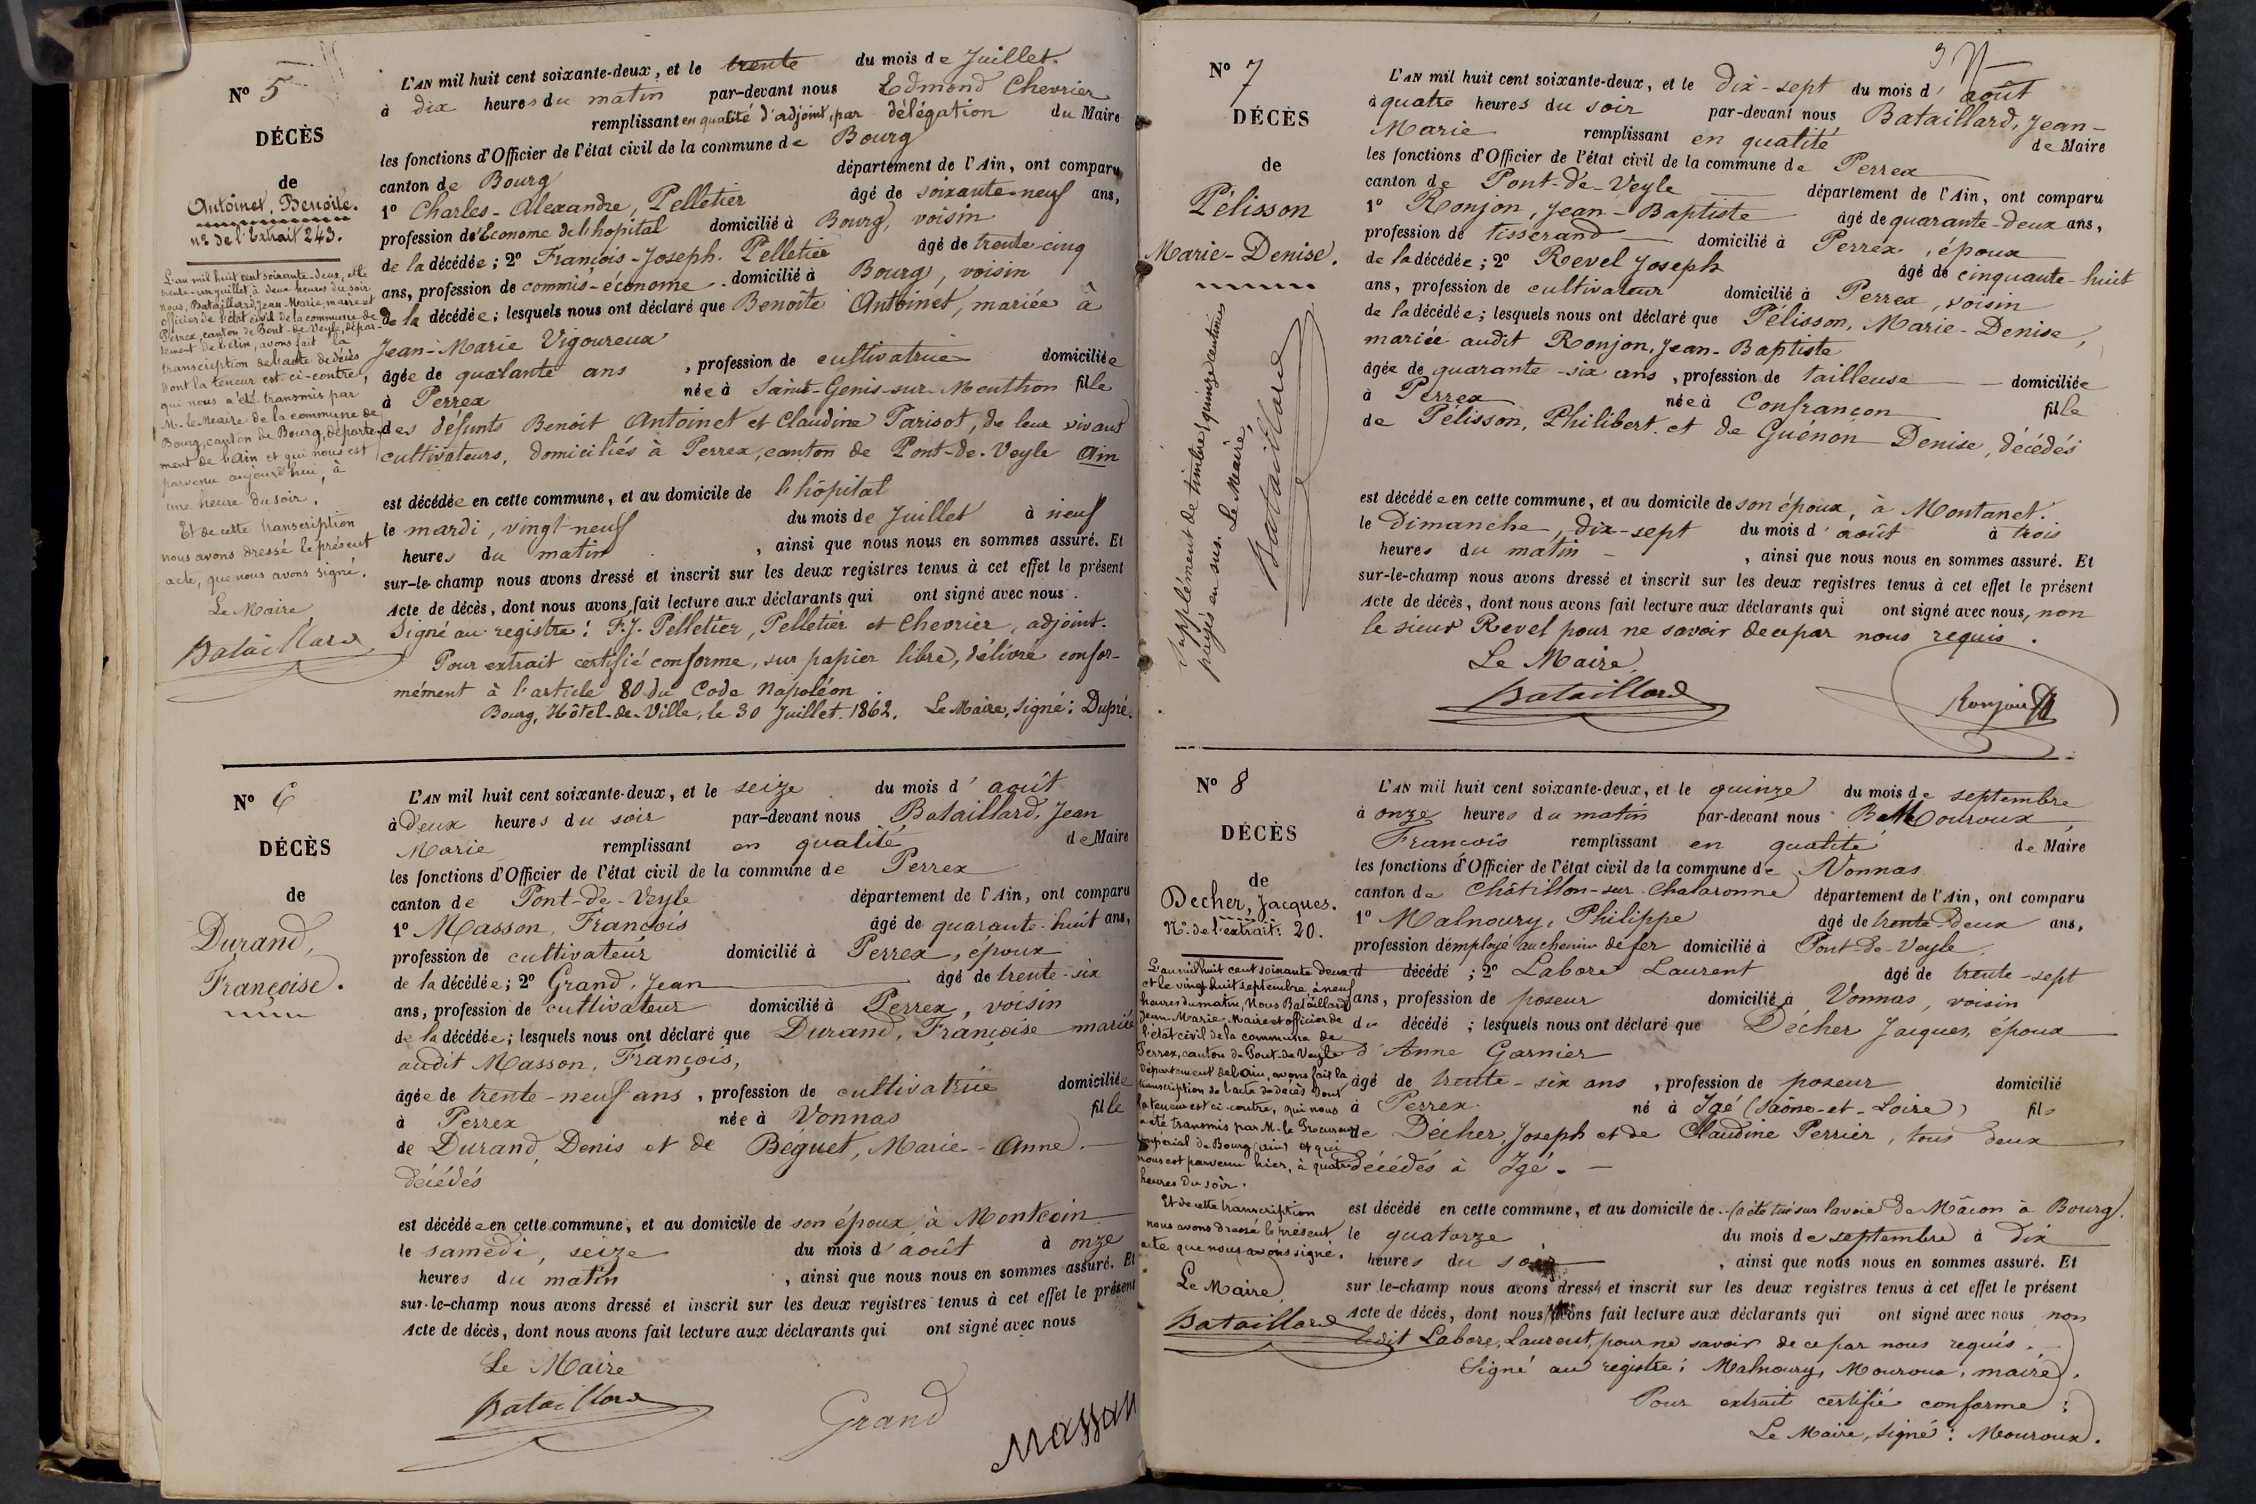 Nº 5
DÉCÈS
de
Antoinet, Benoîte.
nº de l'Extrait 243.
L'an mil huit cent soixante-deux, et le
trente-un juillet, à deux heures du soir
nous, Bataillard, Jean-Marie, maire et
officier de l'état civil de la commune de
Perrex, canton de Pont-de-Veyle, dépar-
tement de l'Ain, avons fait la
transcription de l'acte de décès
dont la teneur est ci-contre,
qui nous a été transmis par
M. le Maire de la commune de
Bourg, canton de Bourg, départe-
ment de l'Ain et qui nous est
parvenu aujourd'hui, à
une heure du soir.
Et de cette transcription
nous avons dressé le présent
acte, que nous avons signé.
Le Maire
Bataillard
L'AN mil huit cent soixante-deux, et le trente du mois de Juillet.
à dix heures du matin par-devant nous Edmond Chevrier
remplissant en qualité d'adjoint, par délégation du Maire
les fonctions d'Officier de l'état civil de la commune de Bourg
canton de Bourg département de l'Ain, ont comparu
1º Charles-Alexandre, Pelletier âgé de soixante-neuf ans,
profession de Econome de l'hopital domicilié à Bourg, voisin
de la décédée; 2º François-Joseph. Pelletier âgé de trente-cinq
ans, profession de commis-économe. domicilié à Bourg, voisin
de la décédée; lesquels nous ont déclaré que Benoîte Antoinet, mariée à
Jean-Marie Vigoureux
âgée de quarante ans, profession de cultivatrice domiciliée
à Perrex née à Saint-Genis-sur-Menthon fille
des défunts Benoit Antoinet et Claudine Parisot, de leur vivant
cultivateurs, domiciliés à Perrex, canton de Pont-de-Veyle Ain
est décédée en cette commune, et au domicile de l'hôpital
le mardi, vingt-neuf du mois de Juillet à neuf
heures du matin, ainsi que nous nous en sommes assuré. Et
sur-le-champ nous avons dressé et inscrit sur les deux registres tenus à cet effet le présent
Acte de décès, dont nous avons fait lecture aux déclarants qui ont signé avec nous.
Signé au registre: F.J. Pelletier, Pelletier et Chevrier, adjoint.
Pour extrait certifié conforme, sur papier libre, délivré confor-
mément à l'article 80 du Code Napoléon.
Bourg, Hôtel-de-Ville, le 30 Juillet. 1862. Le Maire, signé: Dupré.
Nº 6
DÉCÈS
de
Durand,
Françoise.
L'AN mil huit cent soixante-deux, et le seize du mois d'août
à deux heures du soir par-devant nous Bataillard, Jean
Marie remplissant en qualité de Maire
les fonctions d'Officier de l'état civil de la commune de Perrex
canton de Pont-de-Veyle département de l'Ain, ont comparu
1º Masson, François âgé de quarante-huit ans,
profession de cultivateur domicilié à Perrex, époux
de la décédée; 2º Grand, Jean âgé de trente-six
ans, profession de cultivateur domicilié à Perrex, voisin
de la décédée; lesquels nous ont déclaré que Durand, Françoise mariée
audit Masson, François,
âgée de trente-neuf ans, profession de cultivatrice domiciliée
à Perrex née à Vonnas fille
de Durand, Denis et de Béguet, Marie-Anne.
décédés
est décédée en cette commune, et au domicile de son époux à Montcoin
le samedi, seize du mois d'août à onze
heures du matin, ainsi que nous nous en sommes assuré. Et
sur-le-champ nous avons dressé et inscrit sur les deux registres tenus à cet effet le présent
Acte de décès, dont nous avons fait lecture aux déclarants qui ont signé avec nous
Le Maire
Bataillard Grand Massan
Nº 7
DÉCÈS
de
Pélisson
Marie-Denise.
Supplément de timbre, quinze centimes
payés en sus. Le Maire,
Bataillard
L'AN mil huit cent soixante-deux, et le dix-sept du mois d'août
à quatre heures du soir par-devant nous Bataillard, Jean-
Marie remplissant en qualité de Maire
les fonctions d'Officier de l'état civil de la commune de Perrex
canton de Pont-de-Veyle département de l'Ain, ont comparu
1º Ronjon, Jean-Baptiste âgé de quarante-deux ans,
profession de tisserand domicilié à Perrex, époux
de la décédée; 2º Revel Joseph âgé de cinquante-huit
ans, profession de cultivateur domicilié à Perrex, voisin
de la décédée; lesquels nous ont déclaré que Pélisson, Marie-Denise,
mariée audit Ronjon, Jean-Baptiste
âgée de quarante-six ans, profession de tailleuse domiciliée
à Perrex née à Confrançon fille
de Pélisson, Philibert et de Guénon Denise, décédés
est décédée en cette commune, et au domicile de son époux, à Montanet.
le Dimanche, dix-sept du mois d'août à trois
heures du matin, ainsi que nous nous en sommes assuré. Et
sur-le-champ nous avons dressé et inscrit sur les deux registres tenus à cet effet le présent
Acte de décès, dont nous avons fait lecture aux déclarants qui ont signé avec nous, non
le sieur Revel pour ne savoir de ce par nous requis.
Le Maire
Bataillard Ronjon
Nº 8
DÉCÈS
de
Decher, Jacques.
Nº de l'extrait: 20.
L'an mil huit cent soixante deux
et le vingt huit septembre à neuf
heures du matin, Nous Bataillard
Jean-Marie Maire et officier de
l'état civil de la commune de
Perrex, canton de Pont-de-Veyle
département de l'Ain, avons fait la
transcription de l'acte de décès dont
la teneur est ci-contre, qui nous
a été transmis par M. le Procureur
impérial de Bourg (Ain) et qui
nous est parvenu hier, à quatre
heures du soir.
Et de cette transcription
nous avons dressé le présent
acte que nous avons signé.
Le Maire
Bataillard
L'AN mil huit cent soixante-deux, et le quinze du mois de septembre
à onze heures du matin par-devant nous Mouroux
François remplissant en qualité de Maire
les fonctions d'Officier de l'état civil de la commune de Vonnas
canton de Châtillon-sur-Chalaronne département de l'Ain, ont comparu
1º Malnoury, Philippe âgé de trente-deux ans,
profession d'employé au chemin de fer domicilié à Pont-de-Veyle.
décédé; 2º Labore Laurent âgé de trente-sept
ans, profession de poseur domicilié à Vonnas, voisin
du décédé; lesquels nous ont déclaré que Décher Jacques, époux
d'Anne Garnier
âgé de trente-six ans, profession de poseur domicilié
à Perrex né à Igé (Saône-et-Loire) fils
de Décher, Joseph et de Claudine Perrier, tous deux
décédés à Igé.
est décédé en cette commune, et au domicile de (a été tué sur la voie de Mâcon à Bourg.
le quatorze du mois de septembre à dix
heures du soir, ainsi que nous nous en sommes assuré. Et
sur le-champ nous avons dressé et inscrit sur les deux registres tenus à cet effet le présent
Acte de décès, dont nous avons fait lecture aux déclarants qui ont signé avec nous non
ledit Labore, Laurent, pour ne savoir de ce par nous requis.
Signé au registre: Malnoury, Mouroux, maire.
Pour extrait certifié conforme:
Le Maire, signé: Mouroux.